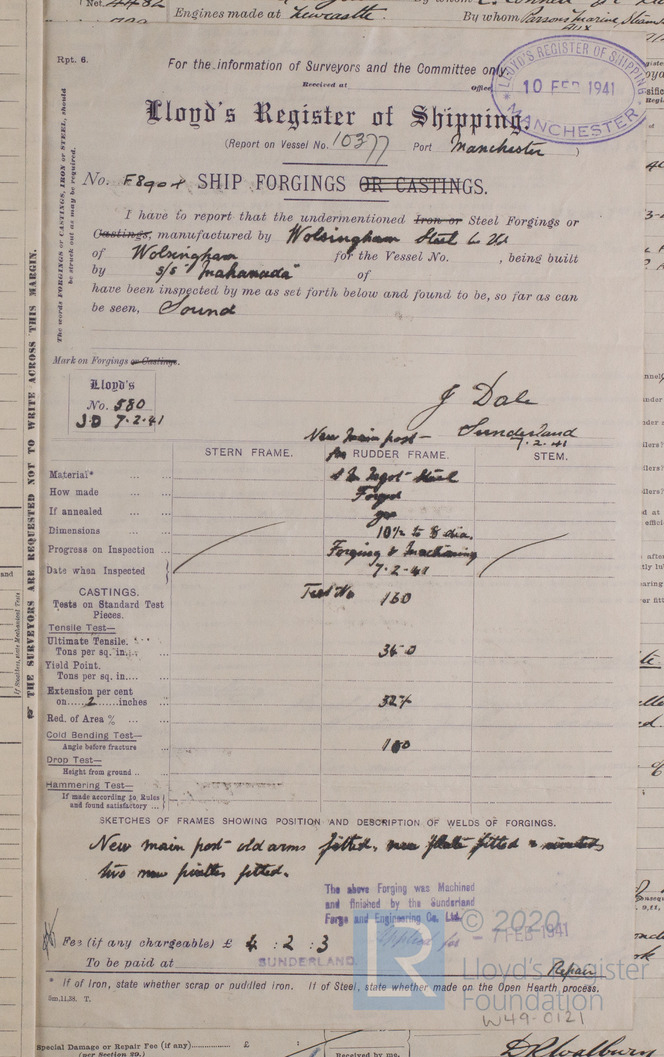 Engines made at Newcastle. By whom Parsons Marine Steam
Rpt. 6.
For the information of Surveyors and the Committee only.
Received at Office
LLOYD'S REGISTER OF SHIPPING
10 FEB 1941
MANCHESTER
Lloyd's Register of Shipping.
(Report on Vessel No. 10377 Port Manchester )
No. F8904 SHIP FORGINGS OR CASTINGS.
I have to report that the undermentioned Iron or Steel Forgings or
Castings, manufactured by Wolsingham Steel Co Ltd
of Wolsingham for the Vessel No. , being built
by S/S "Mahanada" of
have been inspected by me as set forth below and found to be, so far as can
be seen, Sound
The words FORGINGS or CASTINGS, IRON or STEEL, should
be struck out as may be required.
THE SURVEYORS ARE REQUESTED NOT TO WRITE ACROSS THIS MARGIN.
Mark on Forgings or Castings.
Lloyd's
No. 580
J.D 7.2.41
J Dale
Sunderland
7.2.41
New main post
STERN FRAME. for RUDDER FRAME. STEM.
Material* S M Ingot Steel
How made Forged
If annealed yes
Dimensions 10½ to 8 dia.
Progress on Inspection Forging & Machining
Date when Inspected 7.2.41
CASTINGS.
Tests on Standard Test Test No 160
Pieces.
Tensile Test—
Ultimate Tensile.
Tons per sq. in. 36.0
Yield Point.
Tons per sq. in.
Extension per cent
on 2 inches 32%
Red. of Area %
Cold Bending Test— 180
Angle before fracture
Drop Test—
Height from ground
Hammering Test—
If made according to Rules
and found satisfactory
SKETCHES OF FRAMES SHOWING POSITION AND DESCRIPTION OF WELDS OF FORGINGS.
New main post old arms fitted, new plate fitted & riveted
two new pintles fitted.
The above Forging was Machined
and finished by the Sunderland
Forge and Engineering Co. Ltd.
© 2020
Applied for - 7 FEB 1941
Fee (if any chargeable) £ 4 : 2 : 3
To be paid at SUNDERLAND
Repair
* If of Iron, state whether scrap or puddled iron. If of Steel, state whether made on the Open Hearth process.
LR
Lloyd's Register
Foundation
W49-0121
Special Damage or Repair Fee (if any) £ :
(per Section 29.) Received by me,